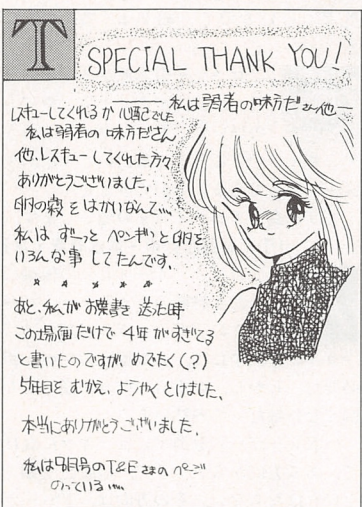 T
SPECIAL THANK YOU!
レスキューしてくれるか 心配でした
―― 私は弱者の味方だ さん他 ―
私は弱者の味方ださん
他、レスキューしてくれた方々
ありがとうございました。
卵の殻をはかいなんて…
私は ずーっと ペンギンと卵を
いろんな事 してたんです。
☆ ☆ ☆ ☆ ☆
あと、私がお葉書き 送った時
この場面だけで 4年がすぎてる
と書いたのですが めでたく(?)
5年目を むかえ、ようやく とけました。
本当にありがとうございました。
私は 月号のT&E さまの ページ
のっている